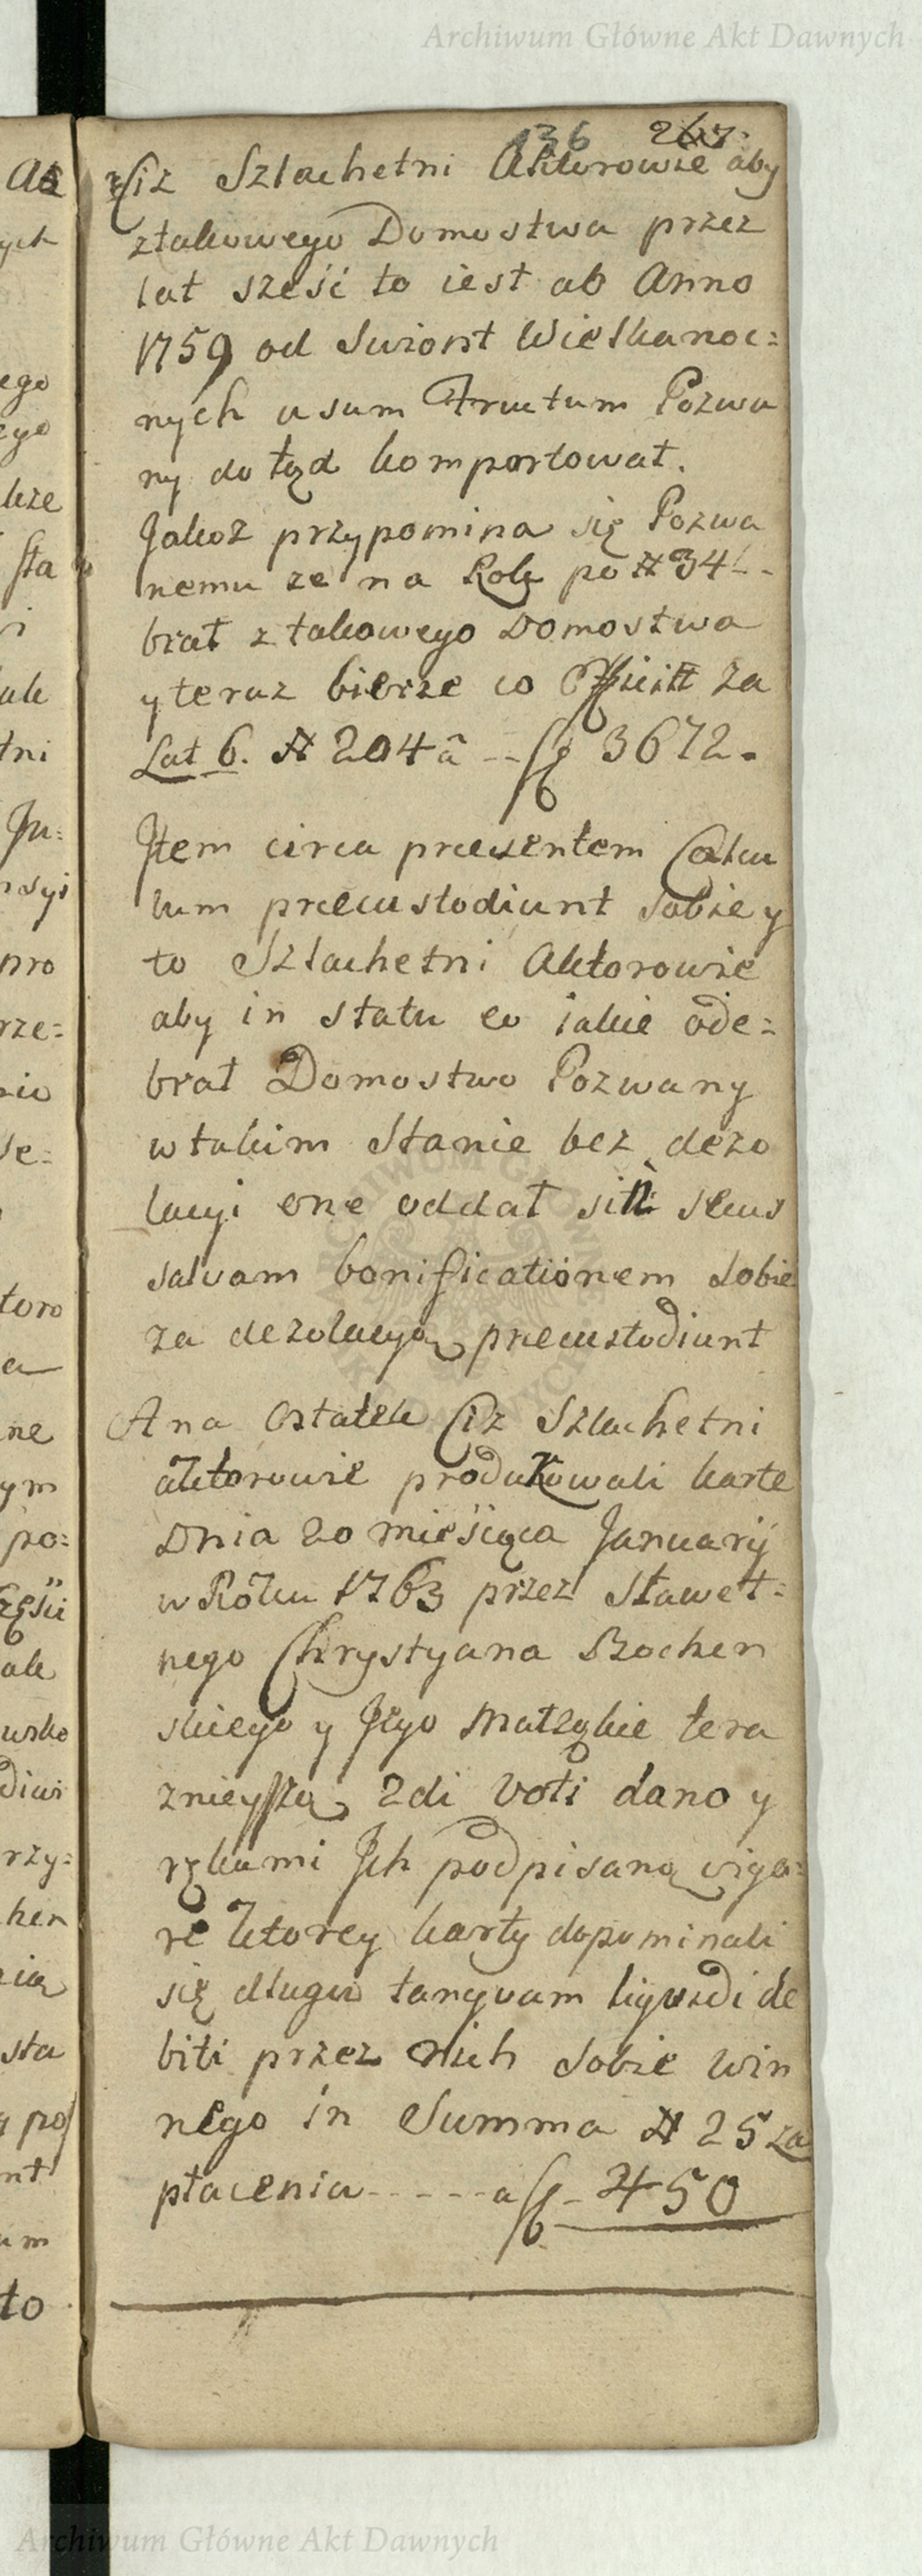 Archiwum Główne Akt Dawnych
136 267.
Ciz Szlachetni Aktorowie aby
ztakowego Domostwa przez
lat sześć to iest ab Anno
1759 od Swiąt Wielkanoc=
nych usum Fructum Pozwa
ny do tąd komportował.
Jakoż przypomina się Pozwa
nemu ze na Rok po # 34 - -
brał z takowego Domostwa
y teraz bierze co za
Lat 6. # 204 â -- fl 3672.
Item circa praesentem Calcu
lum praecustodiunt sobie y
to Szlachetni Aktorowie
aby in statu eo iakie ode=
brał Domostwo Pozwany
w takim Stanie bez dezo
lacyi one oddał sin secus
salvam bonificationem sobie
za dezolacyą praecustodiunt
A na Ostatek Ciz Szlachetni
aktorowie produkowali karte
Dnia 20 miesiąca Januarij
w Roku 1763 przez Sławet=
nego Chrystyana Bochen
skiego y Jego Małząkie tera
znieyszą 2di Voti dano y
rękami Ich podpisaną vigo=
re ktorey karty dopominali
się długu tanquam liquidi de
biti przez nich sobie win
nego in Summa # 25 za
płacenia - - - - - a fl - 450
Archiwum Główne Akt Dawnych